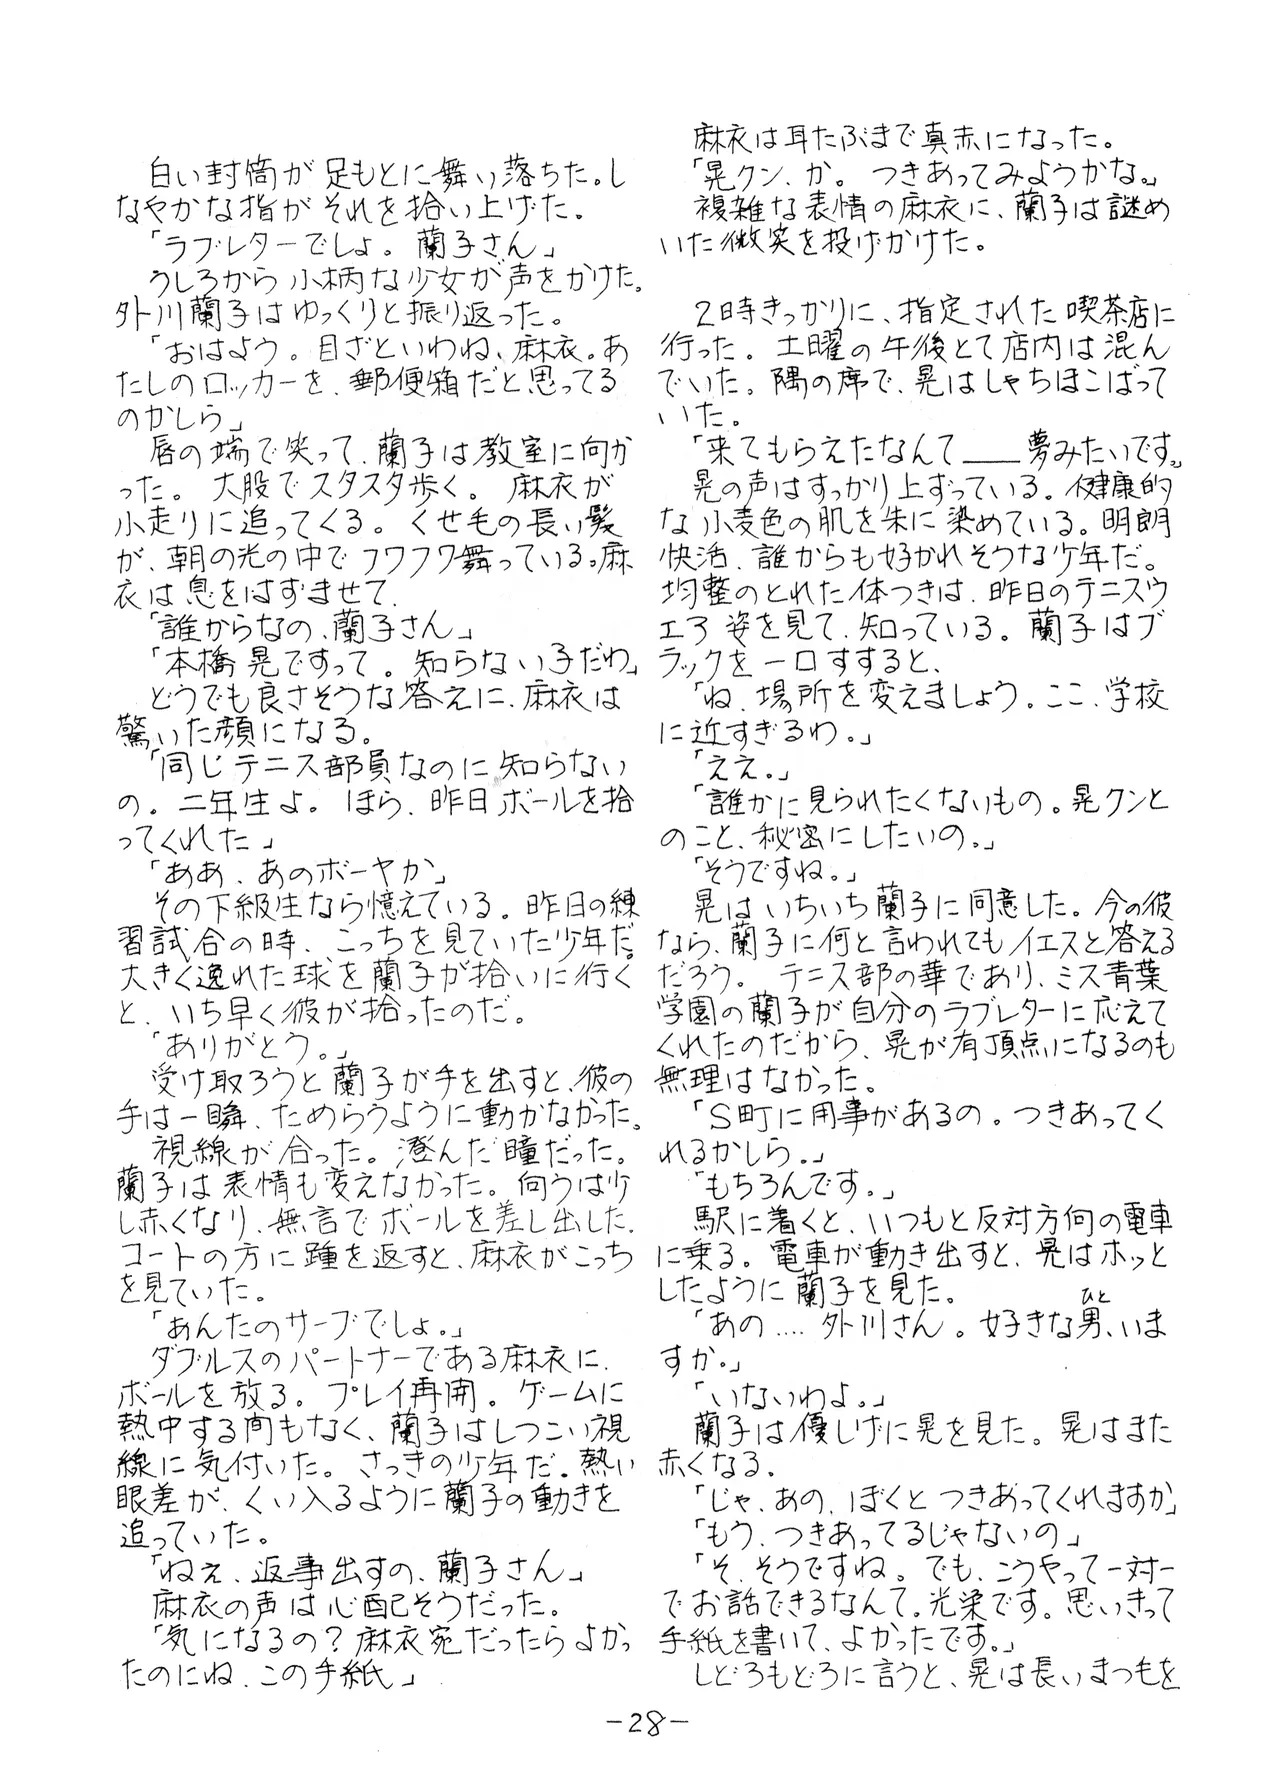 白い封筒が足もとに舞い落ちた。し
なやかな指がそれを拾い上げた。
「ラブレターでしょ。蘭子さん」
うしろから小柄な少女が声をかけた。
外川蘭子はゆっくりと振り返った。
「おはよう。目ざといわね、麻衣。あ
たしのロッカーを、郵便箱だと思ってる
のかしら」
唇の端で笑って、蘭子は教室に向か
った。大股でスタスタ歩く。麻衣が
小走りに追ってくる。くせ毛の長い髪
が、朝の光の中でフワフワ舞っている。麻
衣は息をはずませて、
「誰からなの、蘭子さん」
「本橋晃ですって。知らない子だわ」
どうでも良さそうな答えに、麻衣は
驚いた顔になる。
「同じテニス部員なのに知らない
の。二年生よ。ほら、昨日ボールを拾
ってくれた」
「ああ、あのボーヤか」
その下級生なら憶えている。昨日の練
習試合の時、こっちを見ていた少年だ。
大きく逸れた球を蘭子が拾いに行く
と、いち早く彼が拾ったのだ。
「ありがとう。」
受け取ろうと蘭子が手を出すと、彼の
手は一瞬、ためらうように動かなかった。
視線が合った。澄んだ瞳だった。
蘭子は表情も変えなかった。向うは少
し赤くなり、無言でボールを差し出した。
コートの方に踵を返すと、麻衣がこっち
を見ていた。
「あんたのサーブでしょ。」
ダブルスのパートナーである麻衣に、
ボールを放る。プレイ再開。ゲームに
熱中する間もなく、蘭子はしつこい視
線に気付いた。さっきの少年だ。熱い
眼差が、くい入るように蘭子の動きを
追っていた。
「ねえ、返事出すの、蘭子さん」
麻衣の声は心配そうだった。
「気になるの？麻衣宛だったらよかっ
たのにね、この手紙」
麻衣は耳たぶまで真赤になった。
「晃クン、か。つきあってみようかな。」
複雑な表情の麻衣に、蘭子は謎め
いた微笑を投げかけた。
2時きっかりに、指定された喫茶店に
行った。土曜の午後とて店内は混ん
でいた。隅の席で、晃はしゃちほこばって
いた。
「来てもらえたなんて――夢みたいです。」
晃の声はすっかり上ずっている。健康的
な小麦色の肌を朱に染めている。明朗
快活、誰からも好かれそうな少年だ。
均整のとれた体つきは、昨日のテニスウ
エア姿を見て、知っている。蘭子はブ
ラックを一口すすると、
「ね、場所を変えましょう。ここ、学校
に近すぎるわ。」
「ええ。」
「誰かに見られたくないもの。晃クンと
のこと、秘密にしたいの。」
「そうですね。」
晃はいちいち蘭子に同意した。今の彼
なら、蘭子に何と言われてもイエスと答える
だろう。テニス部の華であり、ミス青葉
学園の蘭子が自分のラブレターに応えて
くれたのだから、晃が有頂点になるのも
無理はなかった。
「S町に用事があるの。つきあってく
れるかしら。」
「もちろんです。」
駅に着くと、いつもと反対方向の電車
に乗る。電車が動き出すと、晃はホッと
したように蘭子を見た。
「あの‥‥外川さん。好きな男、いま
ひと
すか。」
「いないわよ。」
蘭子は優しげに晃を見た。晃はまた
赤くなる。
「じゃ、あの、ぼくとつきあってくれますか」
「もう、つきあってるじゃないの」
「そ、そうですね。でも、こうやって一対一
でお話できるなんて。光栄です。思いきって
手紙を書いて、よかったです。」
しどろもどろに言うと、晃は長いまつ毛を
-28-